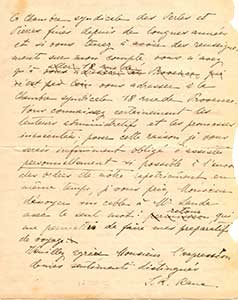 & Chambre syndicale des Perles et
Pierres fines depuis de longues années
et si vous tenez à avoir des renseigne
ments sur mon compte, vous n'avez
qu'à
n'est pas loin vous adresser à la
Chambre syndicale 18 rue de Provence.
Vous connaissez certainement les
lenteurs administratives et les personnes
intéressées. pour cette raison je vous
serais infiniment obligé d'assister
personnellement si possible à l'envoi
des ordres de
même temps, je vous prie, Monsieur
d'envoyer un cable à Mr
avec le seul mot: retour qui
me permettra de faire mes préparatifs
de voyage.
Veuillez agréer Monsieur l'expression
de mes sentiments distingués